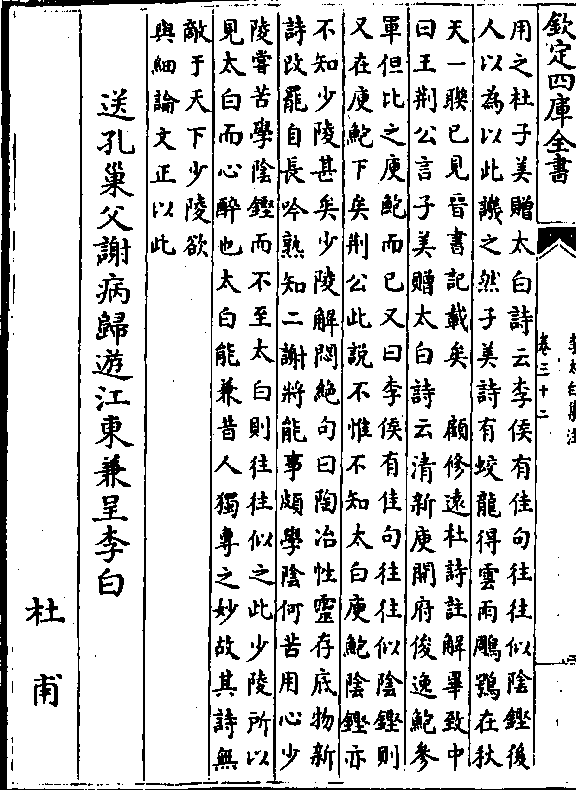 欽定四庫全書
李太白集注
卷三十二
用之杜子美贈太白詩云李侯有佳句往往似陰鏗後
人以為以此譏之然子美詩有蛟龍得雲雨鵰鶚在秋
天一聯已見晉書記載矣　顧修遠杜詩註解畢致中
曰王荆公言子美贈太白詩云清新庾開府俊逸鮑參
軍但比之庾鮑而已又曰李侯有佳句往往似陰鏗則
又在庾鮑下矣荆公此説不惟不知太白庾鮑陰鏗亦
不知少陵甚矣少陵解悶絶句曰陶冶性靈存底物新
詩改罷自長吟熟知二謝將能事頗學陰何苦用心少
陵嘗苦學陰鏗而不至太白則往往似之此少陵所以
見太白而心醉也太白能兼昔人獨專之妙故其詩無
敵于天下少陵欲
與細論文正以此
送孔巢父謝病歸遊江東兼呈李白
杜甫